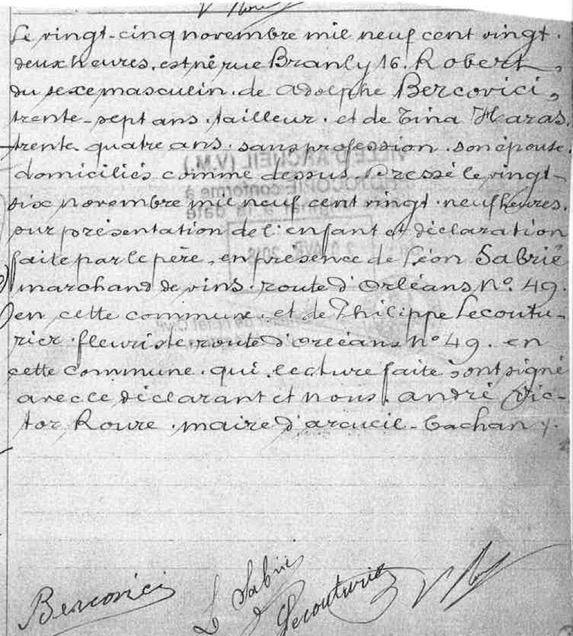 Le vingt-cinq novembre mil neuf cent vingt.
deux heures, est né rue Branly 16. Robert,
du sexe masculin. de Adolphe Bercovici,
trente-sept ans. tailleur. et de Tina Haras.
trente quatre ans. sans profession. son épouse.
domiciliés comme dessus. Dressé le vingt-
six novembre mil neuf cent vingt. neuf heures.
sur présentation de l'enfant et déclaration
faite par le père, en présence de Léon Sabrié
marchand de vins. route d'Orléans No. 49.
en cette commune. et de Philippe Lecoutu-
rier. fleuriste. route d'Orléans no 49. en
cette commune. qui, lecture faite, ont signé
avec le déclarant et nous. André Vic-
tor Roure. maire d'Arcueil-Cachan.
VILLE D'ARCUEIL (V.M.)
PHOTOCOPIE conforme à
à la date
Bercovici
L Sabrié
Lecouturier